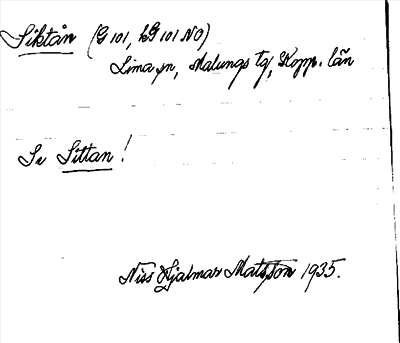 Siktån (G 101, bG 101 NO)
Lima sn, Malungs tg, Kopp. län
Se Sittan!
Niss Hjalmar Matsson 1935.